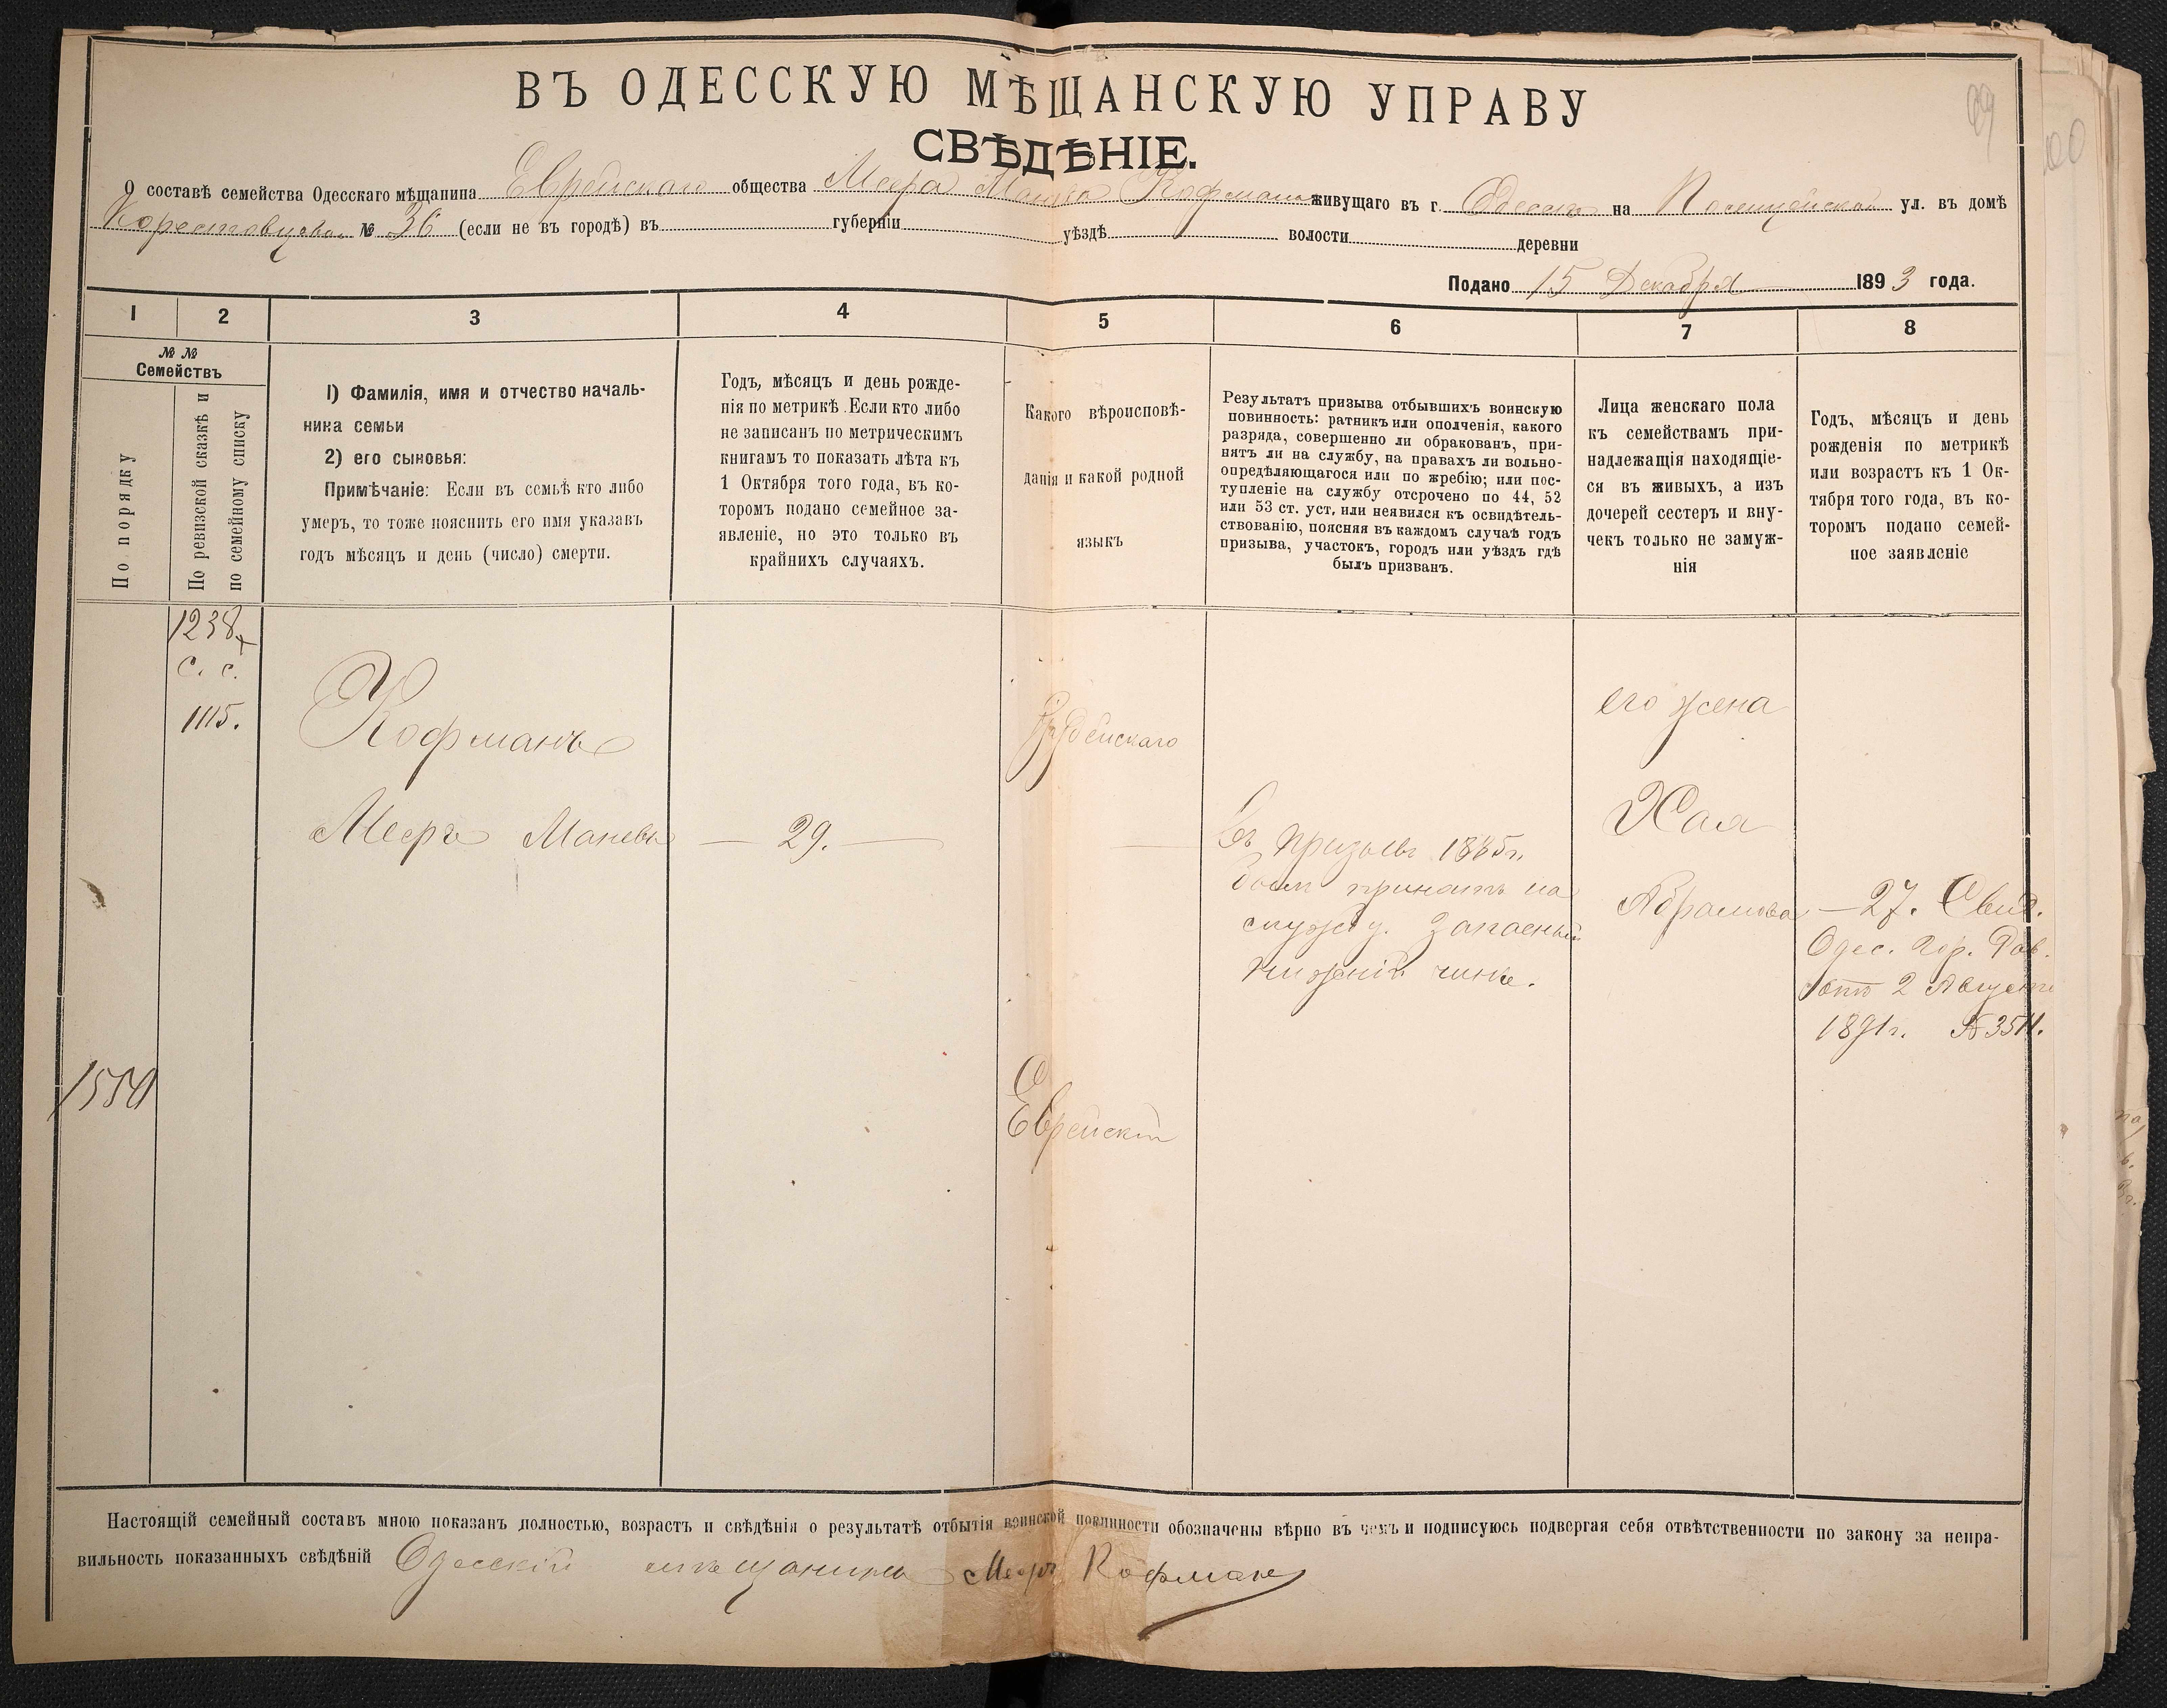 ВЪ ОДЕССКУЮ МѢЩАНСКУЮ УПРАВУ
СВѢДѢНІЕ.
О составѣ семейства Одесскаго мѣщанина Еврейскаго общества Меера Кофмана живущаго въ г. Одессѣ на ул. въ домѣ
№ 36 (если не въ городѣ) въ губерніи уѣздѣ волости деревни
Подано 15 Декабря 1893 года.
1 2 3 4 5 6 7 8
№ №
Семействъ
По порядку
По ревизской сказкѣ и
по семейному списку
1) Фамилія, имя и отчество началь-
ника семьи
2) его сыновья:
Примѣчаніе: Если въ семьѣ кто либо
умеръ, то тоже пояснить его имя указавъ
годъ мѣсяцъ и день (число) смерти.
Годъ, мѣсяцъ и день рожде-
нія по метрикѣ. Если кто либо
не записанъ по метрическимъ
книгамъ то показать лѣта къ
1 Октября того года, въ ко-
торомъ подано семейное за-
явленіе, но это только въ
крайнихъ случаяхъ.
Какого вѣроисповѣ-
данія и какой родной
языкъ
Результатъ призыва отбывшихъ воинскую
повинность: ратникъ или ополченія, какого
разряда, совершенно ли обракованъ, при-
нятъ ли на службу, на правахъ ли вольно-
опредѣляющагося или по жребію; или пос-
тупленіе на службу отсрочено по 44, 52
или 53 ст. уст. или неявился къ освидѣтель-
ствованію, поясняя въ каждомъ случаѣ годъ
призыва, участокъ, городъ или уѣздъ гдѣ
былъ призванъ.
Лица женскаго пола
къ семействамъ при-
надлежащія находящіе-
ся въ живыхъ, а изъ
дочерей сестеръ и вну-
чекъ только не замуж-
нія
Годъ, мѣсяцъ и день
рожденія по метрикѣ
или возрастъ къ 1 Ок-
тября того года, въ ко-
торомъ подано семей-
ное заявленіе
1238
с. с.
1115.
Кофманъ
Іудейскаго
его жена
Мееръ Маневъ — 29. —
Въ призывъ 1885г.
былъ принятъ на
службу. Запасный
нижній чинъ.
Хая
Абрамова — 27. Свид.
Одес. Гор. Рав.
отъ 2 Августа
1891г. № 3511.
1550
Еврейскій
Настоящій семейный составъ мною показанъ полностью, возрастъ и свѣдѣнія о результатѣ отбытія воинской повинности обозначены вѣрно въ чемъ и подписуюсь подвергая себя отвѣтственности по закону за непра-
вильность показанныхъ свѣдѣній Одесскій мѣщанинъ Мееръ Кофманъ